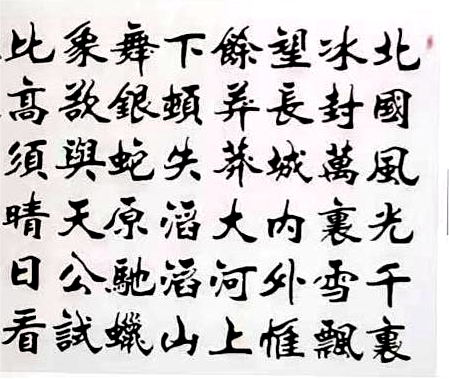 北國風光千裏
冰封萬裏雪飄
望長城内外惟
餘莽莽大河上
下頓失滔滔山
舞銀蛇原馳蠟
象欲與天公試
比高須晴日看